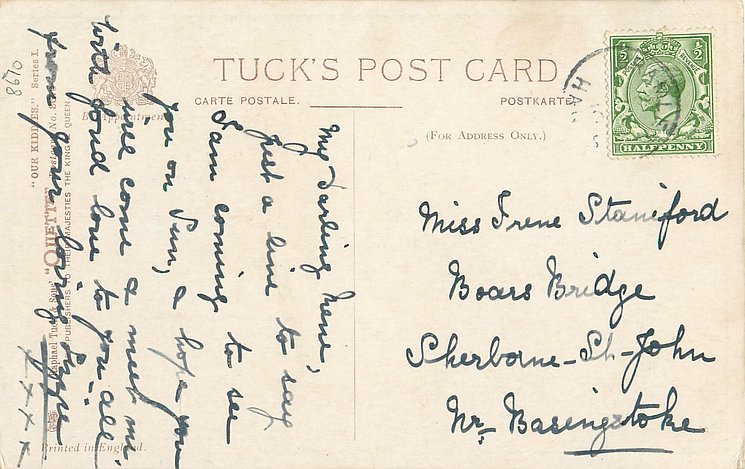 TUCK'S POST CARD
CARTE POSTALE.
POSTKARTE
(FOR ADDRESS ONLY.)
½ ½
HALFPENNY
My Darling Irene,
Just a line to say
I am coming to see
you on Sun, & hope you
will come & meet me
with fond love to you all
from your loving
x x x x
Miss Irene Staniford
Boars Bridge
Sherborne-St-John
Nr. Basingstoke
8670
"OUR KIDDIES." Series I.
Raphael Tuck & Sons' "OILETTE"
PUBLISHERS TO THEIR MAJESTIES THE KING & QUEEN.
Printed in England.